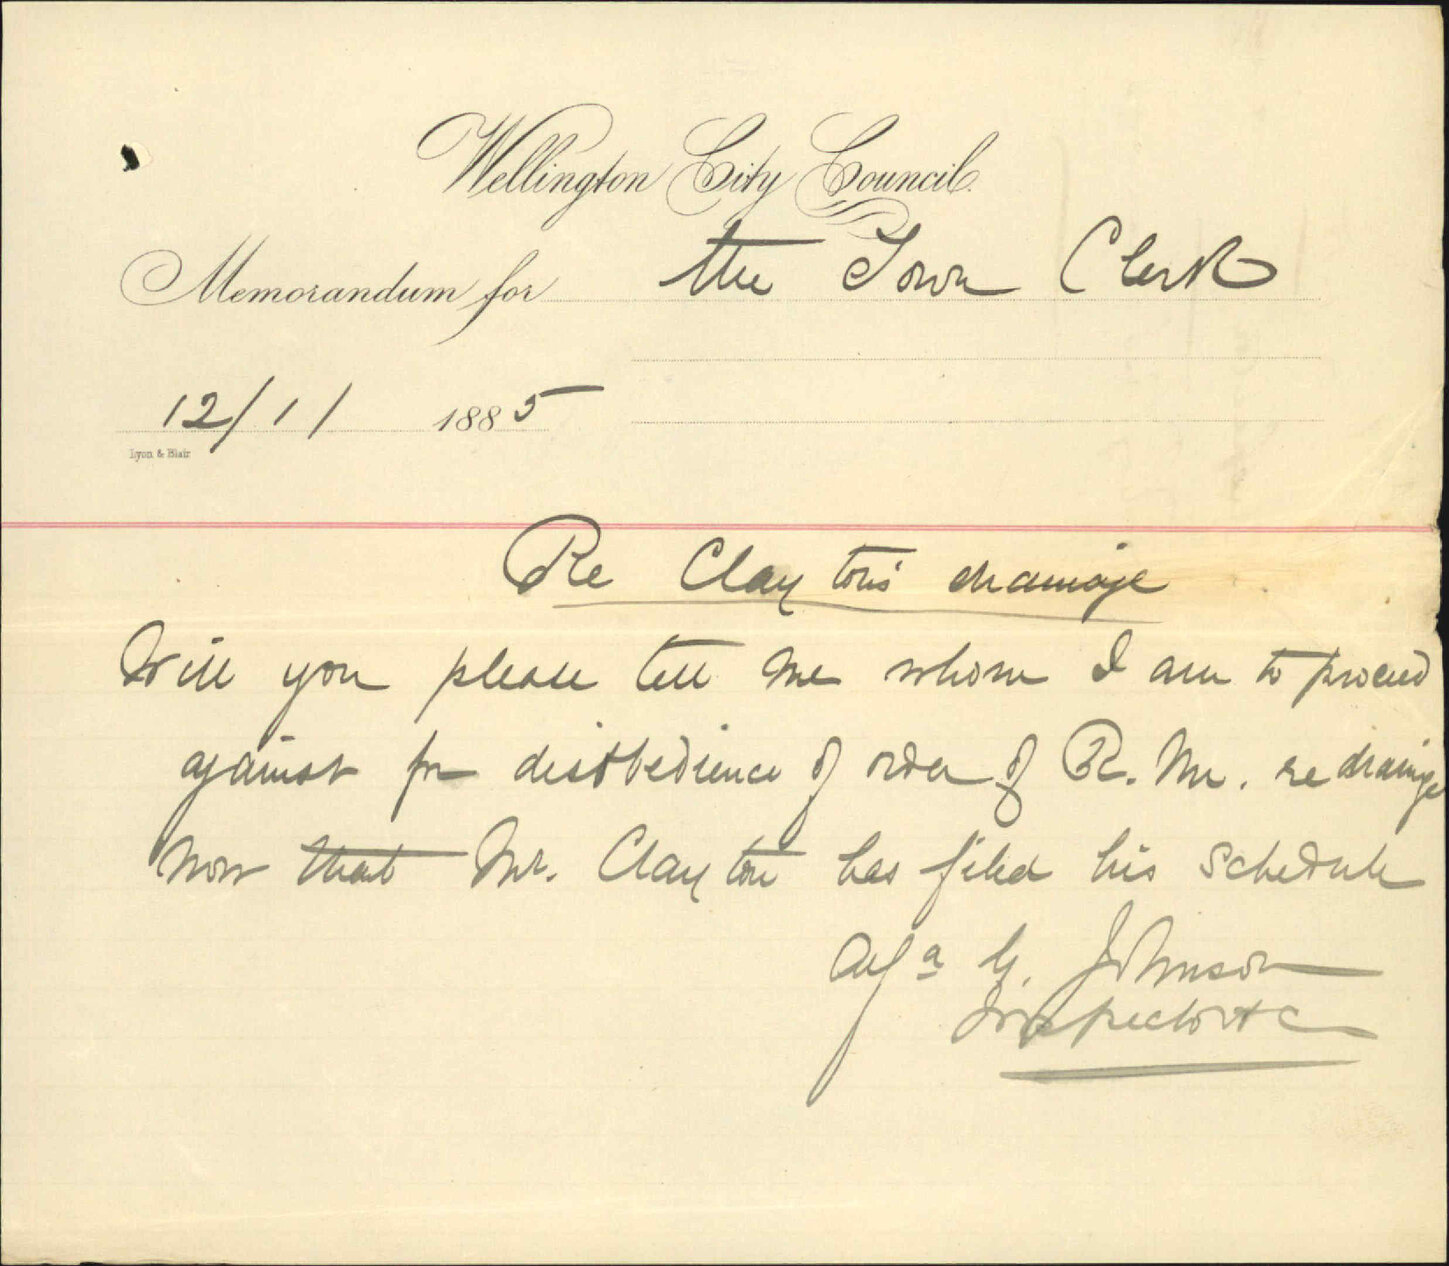 Wellington City Council.
Memorandum for the Town Clerk
12/11 1885
Lyon & Blair
Re Clayton's drainage
Will you please tell me whom I am to proceed
against for disobedience of order of R. M. re drainage
now that Mr. Clayton has filed his schedule
Alfa G. Johnson
Inspector &c